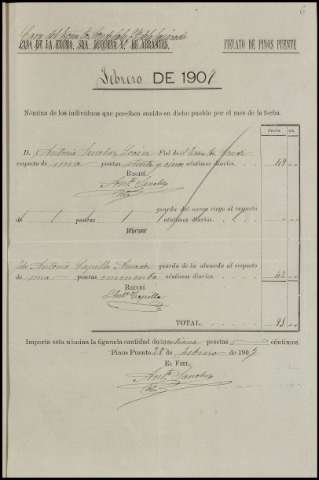 6
CASA DE LA EXCMA. SRA. DUQUESA V.ª DE ABRANTES.
FIELATO DE PINOS PUENTE
Febrero DE 1907
Nómina de los individuos que perciben sueldo en dicho pueblo por el mes de la fecha.
D. Antonio Sanchez Fiel de
respecto de una pesetas céntimos diarios. 49
RECIBÍ
Ant.º Sanchez
guarda del campo riego al respecto
de pesetas céntimos diarios.
RECIBÍ
Id. Antonio Capilla guarda de la alameda al respecto
de una pesetas cincuenta céntimos diarios. 42
RECIBÍ
Ant.º Capilla
TOTAL. 91
Importa esta nómina la figurada cantidad de pesetas céntimos.
Pinos Puente 28 de febrero de 1907
EL FIEL,
Ant.º Sanchez